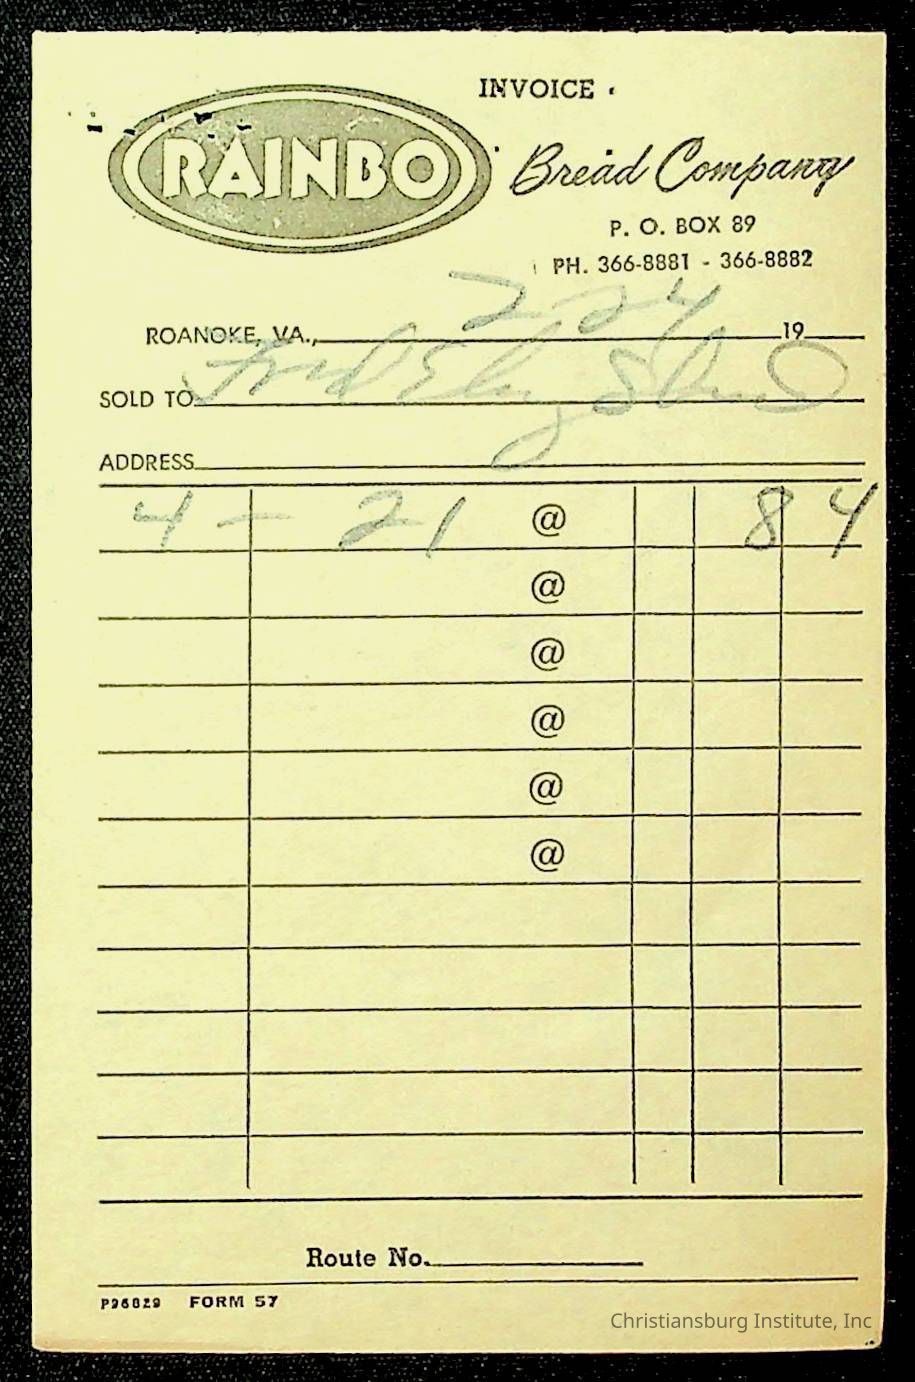 INVOICE
RAINBO Bread Company
P. O. BOX 89
PH. 366-8881 - 366-8882
ROANOKE, VA., 2-24 19
SOLD TO
ADDRESS
4 - 21 @ 84
@
@
@
@
@
Route No.
P96829 FORM 57
Christiansburg Institute, Inc